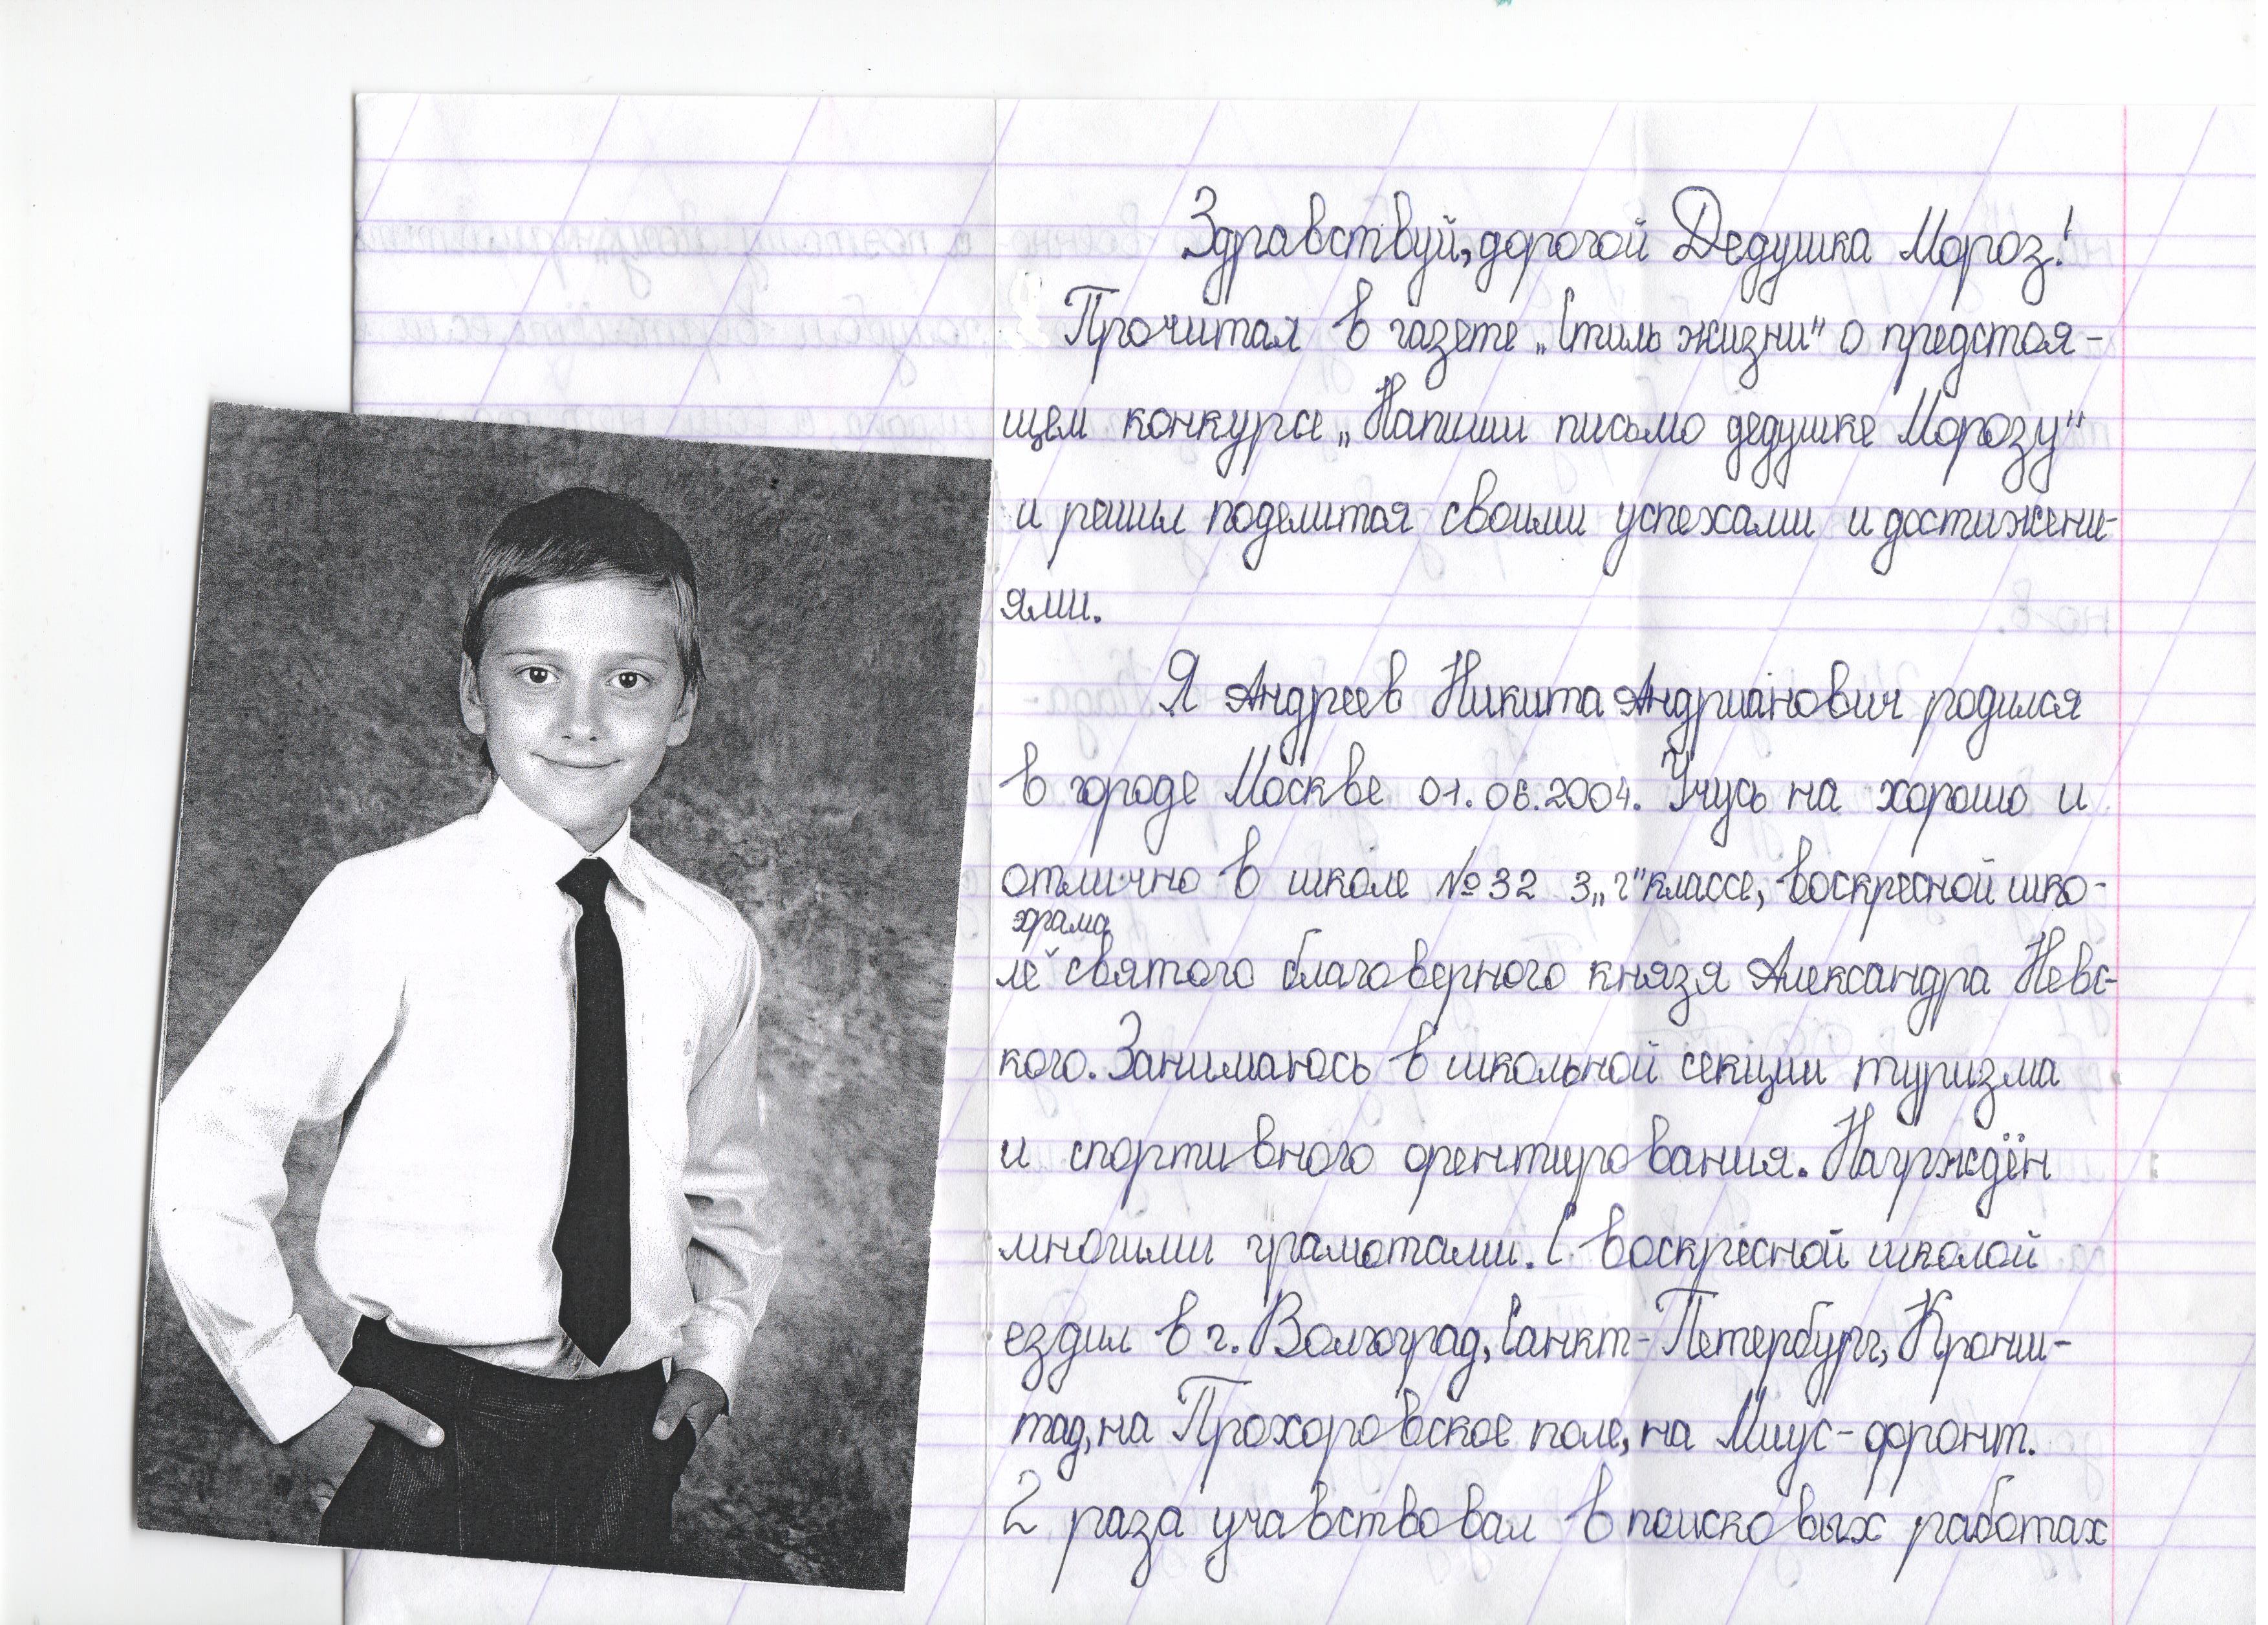 Здравствуй, дорогой Дедушка Мороз!
Прочитал в газете „Стиль жизни" о предстоя-
щем конкурсе „Напиши письмо дедушке Морозу"
и решил поделится своими успехами и достижени-
ями.
Я Андреев Никита Андрианович родился
в городе Москве 01.06.2004. Учусь на хорошо и
отлично в школе №32 3„г" классе, воскресной шко-
храма
ле ˇ святого благоверного князя Александра Невс-
кого. Занимаюсь в школьной секции туризма
и спортивного орентирования. Награждён
многими грамотами. С воскресной школой
ездил в г. Волгоград, Санкт-Петербург, Кронш-
тад, на Прохоровское поле, на Миус-фронт.
2 раза учавствовал в поисковых работах